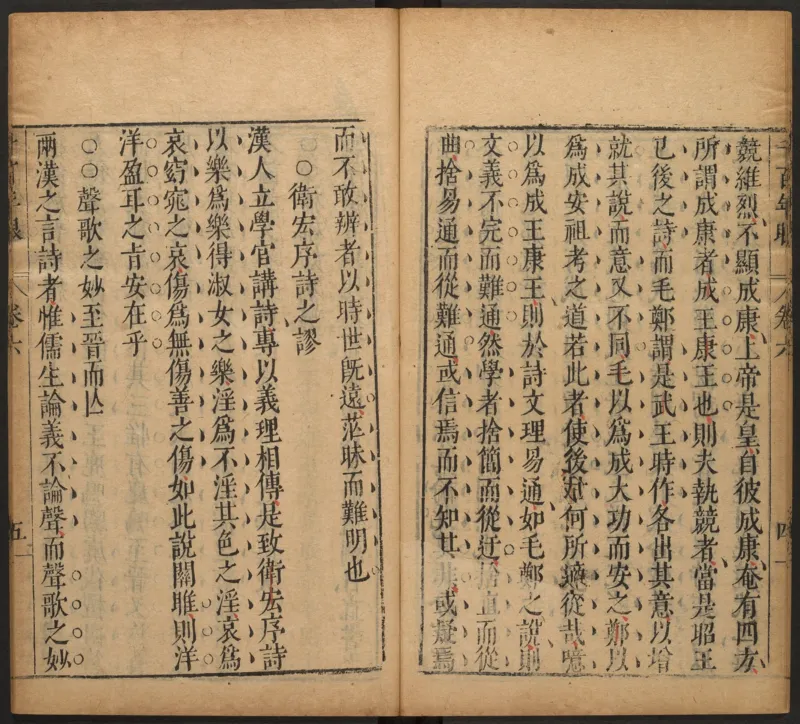 競維烈不顯成康上帝是皇自彼成康奄有四方
所謂成康者成王康王也則夫執競者當是昭王
已後之詩而毛鄭謂是武王時作各出其意以增
就其說而意又不同毛以爲成大功而安之鄭以
爲成安祖考之道若此者使後世何所適從哉噫
以爲成王康王則於詩文理易通如毛鄭之說則
文義不完而難通然學者捨簡而從迂捨直而從
曲捨易通而從難通或信焉而不知其非或疑焉
卷六
四
而不敢辨者以時世既遠茫昧而難明也
○○衛宏序詩之謬
漢人立學官講詩專以義理相傳是致衛宏序詩
以樂爲樂得淑女之樂淫爲不淫其色之淫哀爲
哀窈窕之哀傷爲無傷善之傷如此說關雎則洋
洋盈耳之旨安在乎
○○聲歌之妙至晉而亾
兩漢之言詩者惟儒生論義不論聲而聲歌之妙
卷六
五